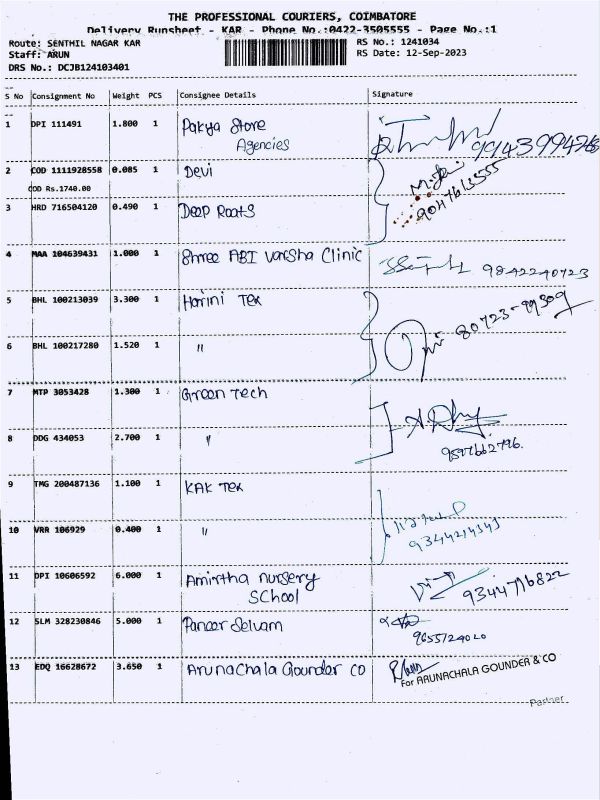 THE PROFESSIONAL COURIERS, COIMBATORE
Delivery Runsheet - KAR - Phone No.:0422-3505555 - Page No.:1
Route: SENTHIL NAGAR KAR
RS No.: 1241034
Staff: ARUN
RS Date: 12-Sep-2023
DRS No.: DCJB124103401
S No Consignment No Weight PCS Consignee Details Signature
1 DPI 111491 1.800 1 Pakya Store
Agencies
2 COD 1111928558 0.085 1 Devi
COD Rs.1740.00
3 HRD 716504120 0.490 1 Deep Roots
4 MAA 104639431 1.000 1 Shree ABI varsha Clinic 9842240723
5 BHL 100213039 3.300 1 Harini Tex
80723-99309
6 BHL 100217280 1.520 1 "
7 MTP 3053428 1.300 1 Green Tech
8 DDG 434053 2.700 1 "
9597662796.
9 TMG 200487136 1.100 1 KAK Tex
10 VRR 106929 0.400 1 " 9344214343
11 DPI 10606592 6.000 1 Amirtha nursery
School 9344716822
12 SLM 328230846 5.000 1 Paneer Selvam
9655724020
13 EDQ 16628672 3.650 1 Arunachala Gounder CO
For ARUNACHALA GOUNDER & CO
Partner